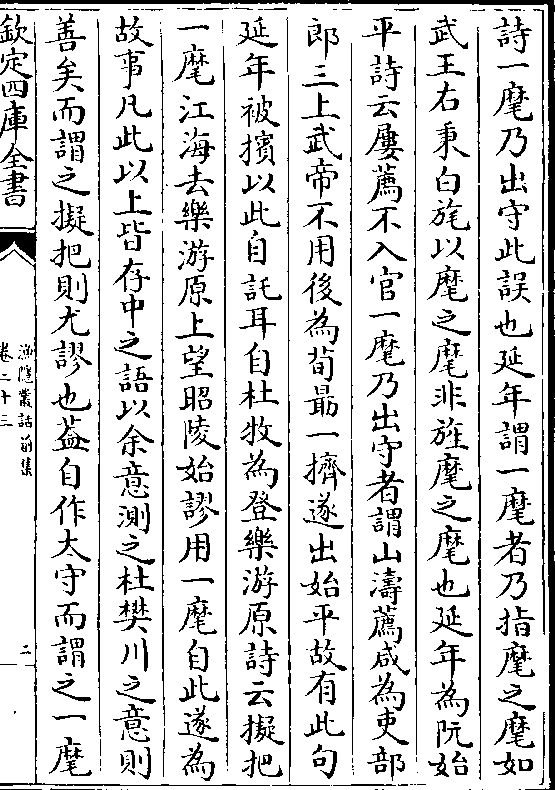 詩一麾乃出守此誤也延年謂一麾者乃指麾之麾如
武王右秉白旄以麾之麾非旌麾之麾也延年為阮始
平詩云屢薦不入官一麾乃出守者謂山濤薦咸為吏部
郎三上武帝不用後為荀勗一擠遂出始平故有此句
延年被擯以此自託耳自杜牧為登樂游原詩云擬把
一麾江海去樂游原上望昭陵始謬用一麾自此遂為
故事凡此以上皆存中之語以余意測之杜樊川之意則
善矣而謂之擬把則尤謬也葢自作太守而謂之一麾
欽定四庫全書
漁隱叢話前集
卷二十三
二